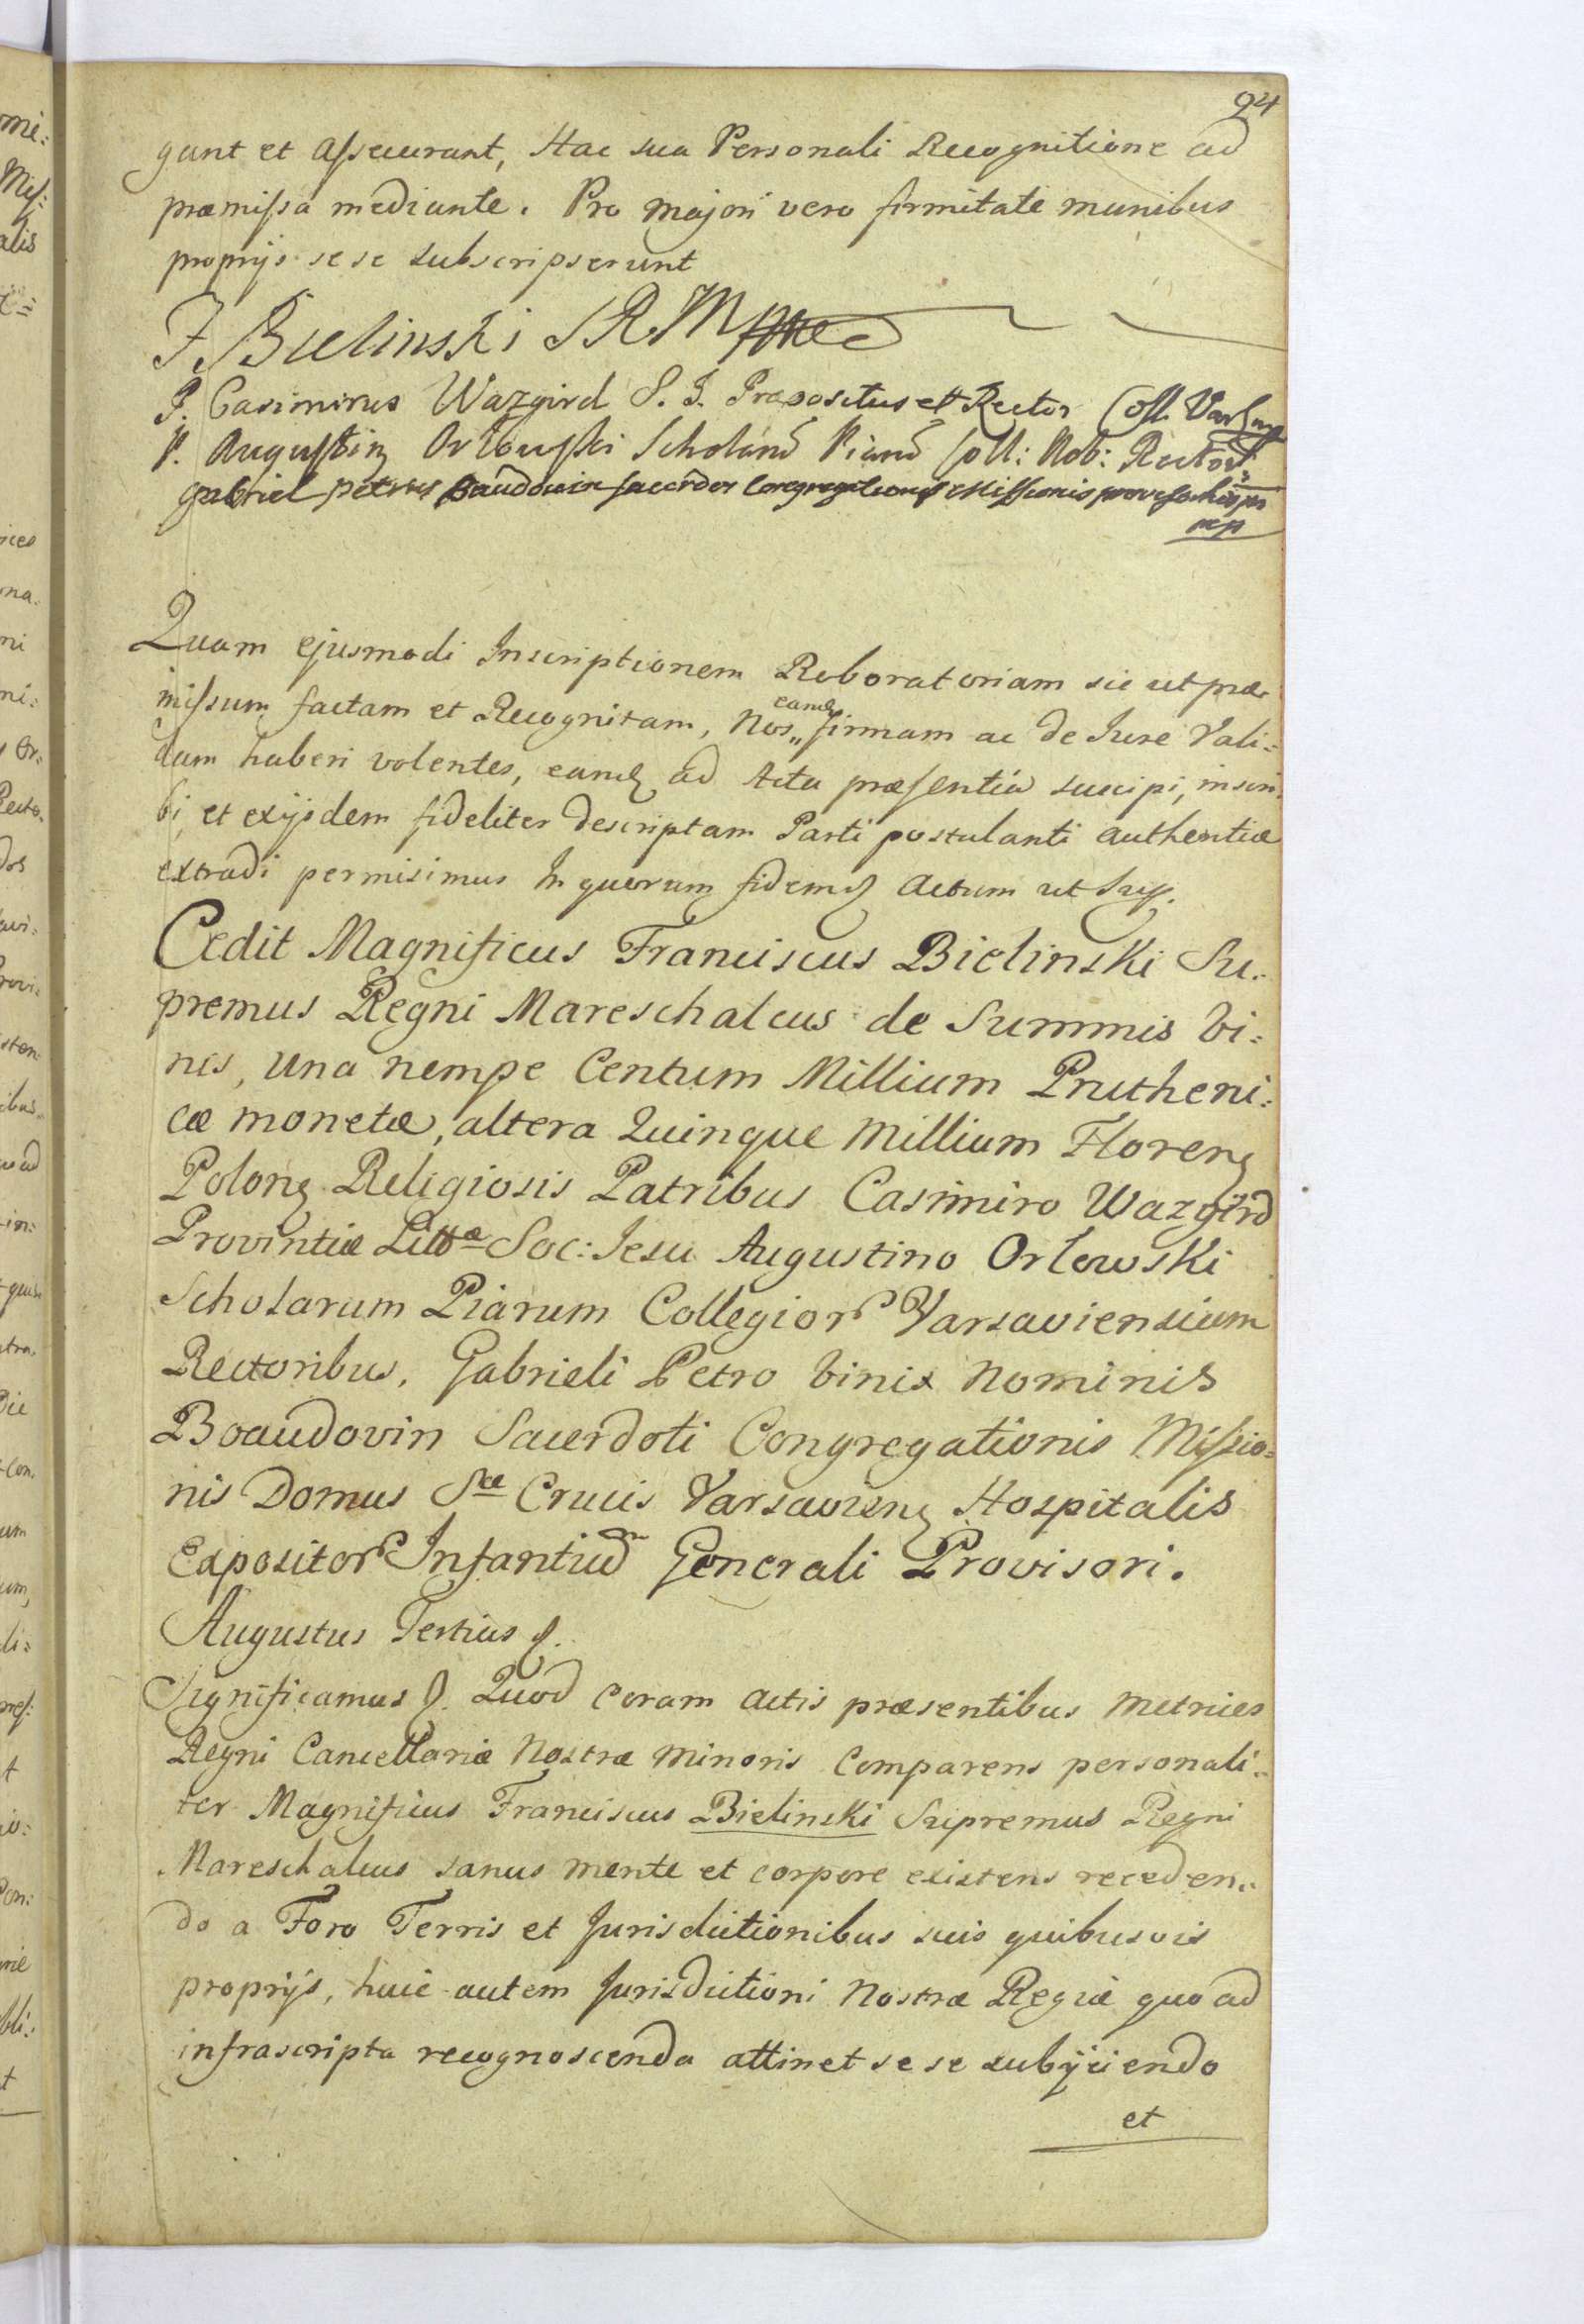 94
gunt et assecurant, Hac sua Personali Recognitione ad
præmissa mediante. Pro majori vero firmitate manibus
proprijs sese subscripserunt
F. Bielinski
P. Casimirus Wazgird S. J. Præpositus et Rector Coll. Vars
P. Augustin Orłouski Scholarū Piarū Coll: Nob: Rector
gabriel petrus Baudouin sacerdos Congregationis Missionis
mp
Quam ejusmodi Inscriptionem Roboratoriam sic ut præ
missum factam et Recognitam, Nos eandȩ firmam ac de Iure Vali=
dam haberi volentes, eandȩ ad Acta præsentia suscipi, inscri=
bi, et exijsdem fideliter descriptam Parti postulanti authentice
extradi permisimus In quorum fidem Actum ut Sup.
Cedit Magnificus Franciscus Bielinski Su=
premus Regni Mareschalcus de Summis bi=
nis, una nempe Centum Millium Prutheni=
cæ monetæ, altera Quinque Millium Floren
Polon Religiosis Patribus Casimiro Wazgird
Provintiæ Littæ Soc: Iesu Augustino Orłowski
Scholarum Piarum Collegior Varsaviensium
Rectoribus, Gabrieli Petro binis Nominis
Boaudovin Sacerdoti Congregationis Missio=
nis Domus Stæ Crucis Varsavien Hospitalis
Expositor Infantium Generali Provisori.
Augustus Tertius
Significamus Quod coram Actis præsentibus Metrices
Regni Cancellariæ Nostræ Minoris Comparens personali=
ter Magnificus Franciscus Bielinski Supremus Regni
Mareschalcus sanus mente et corpore existens receden=
do a Foro Terris et Jurisdictionibus suis quibusvis
proprijs, huic autem Jurisdictioni Nostræ Regiæ quo ad
infrascripta recognoscenda attinet sese subijciendo
et